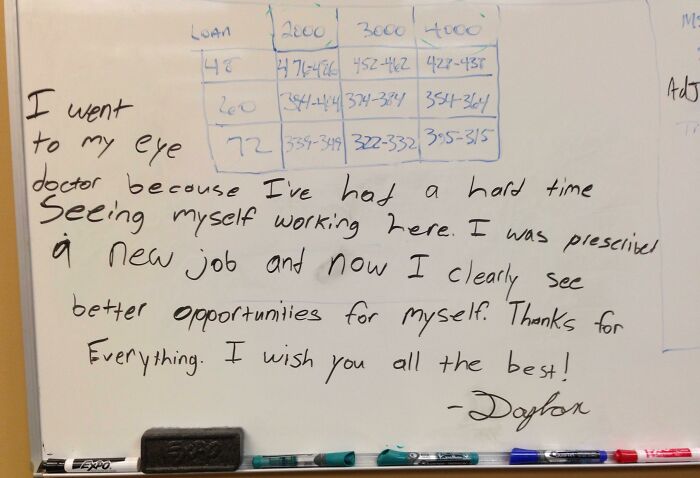 LOAN 2000 3000 4000
48 476-486 452-462 428-438
60 374-384 354-364
72 339-349 322-332 305-315
I went
to my eye
doctor because I've had a hard time
Seeing myself working here. I was prescribed
a new job and now I clearly see
better opportunities for myself. Thanks for
Everything. I wish you all the best!
EXPO
EXPO
AdJ